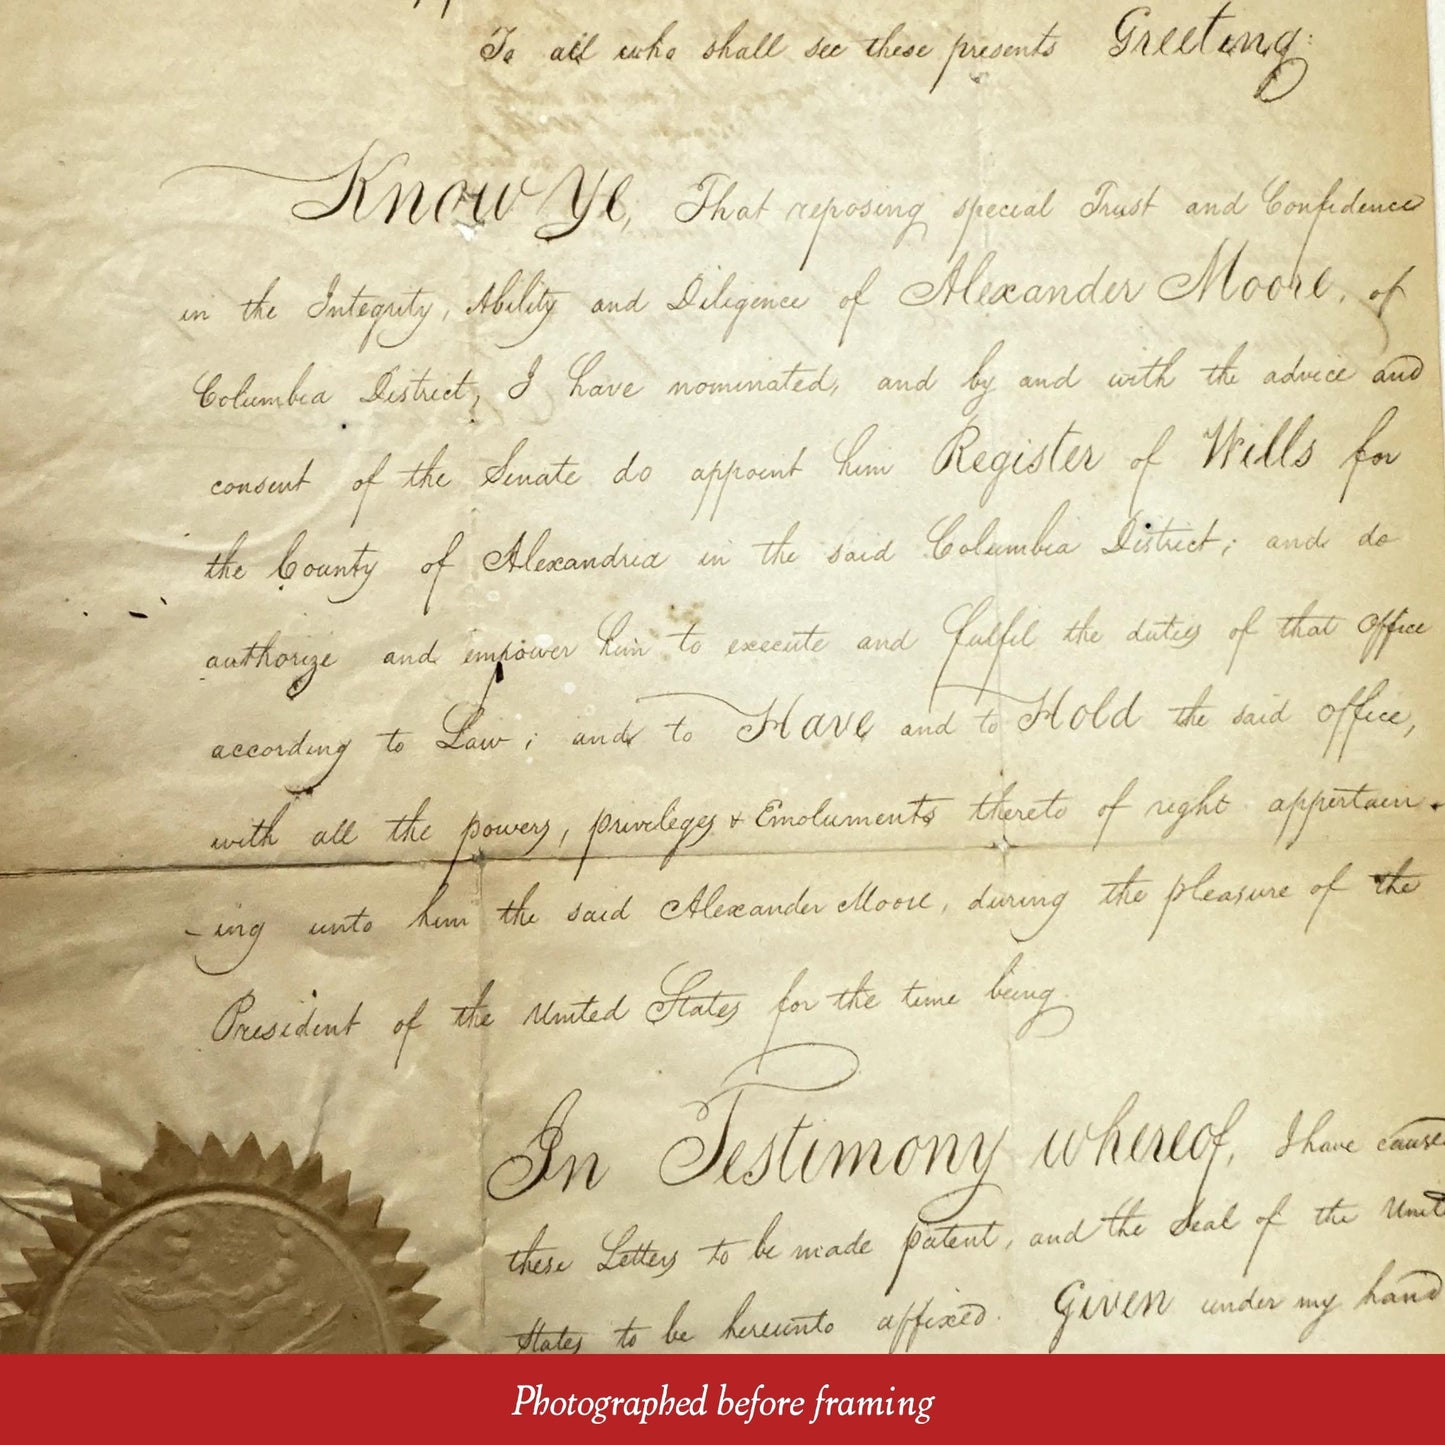 To all who shall see these presents Greeting:
Know Ye, That reposing special Trust and Confidence
in the Integrity, Ability and Diligence of Alexander Moore, of
Columbia District, I have nominated, and by and with the advice and
consent of the Senate do appoint him Register of Wills for
the County of Alexandria in the said Columbia District; and do
authorize and empower him to execute and fulfil the duties of that office
according to Law; and to Have and to Hold the said office,
with all the powers, privileges & Emoluments thereto of right appertain-
-ing unto him the said Alexander Moore, during the pleasure of the
President of the United States for the time being.
In Testimony whereof, I have cause
these Letters to be made patent, and the Seal of the Unit
States to be hereunto affixed. Given under my hand
Photographed before framing